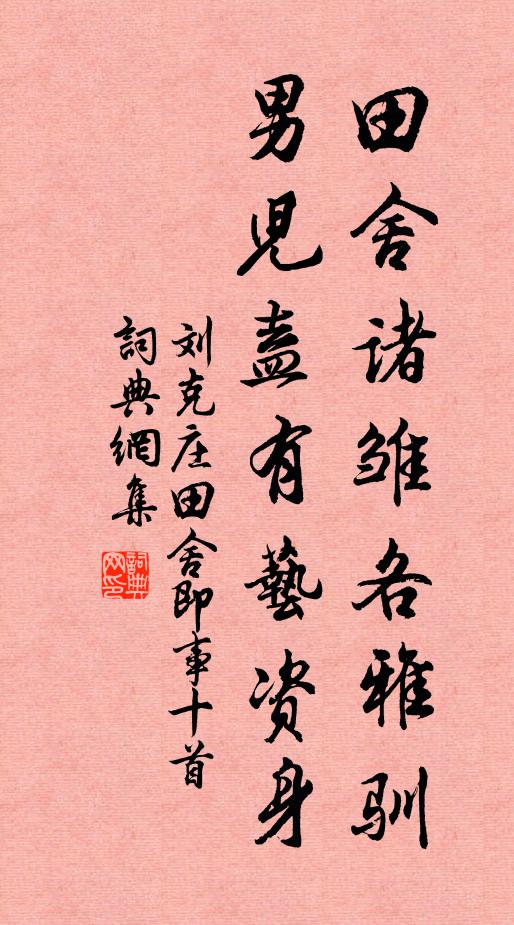 田舍诸雏各雅驯
男児盍有藝资身
刘克庄田舍即事十首
詞典網集
詞典网印